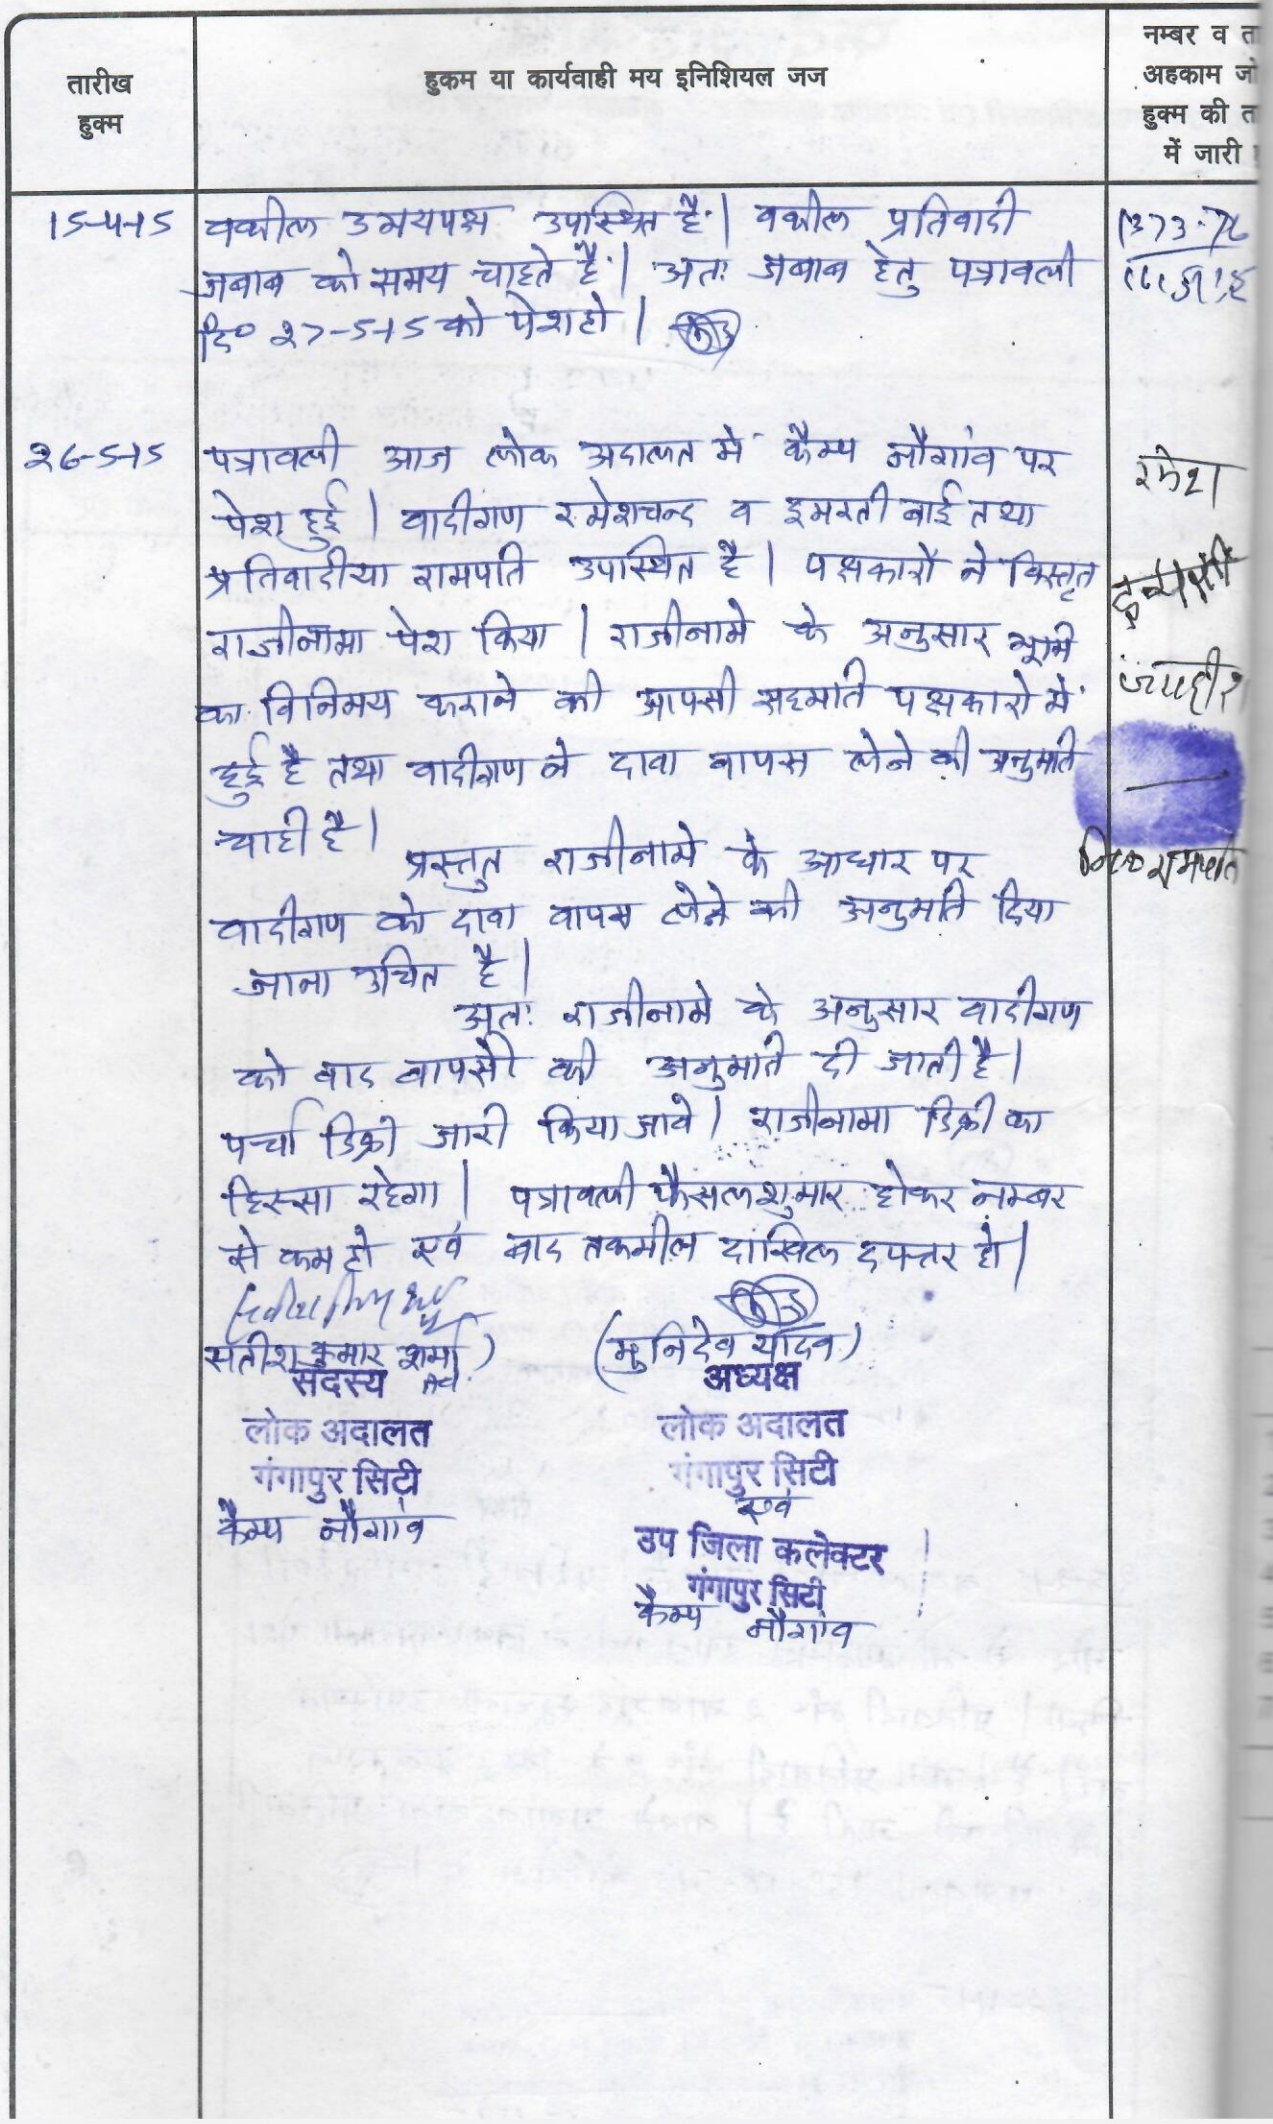 तारीख
हुक्म
हुकम या कार्यवाही मय इनिशियल जज
नम्बर व ता
अहकाम जो
हुक्म की ता
में जारी
15-4-15
वकील उभयपक्ष उपस्थित है। वकील प्रतिवादी
जबाब को समय चाहते है। अतः जबाब हेतु पत्रावली
दि० २7-5-15 को पेश हो।
२6-5-15
पत्रावली आज लोक अदालत में कैम्प नौगांव पर
पेश हुई। वादीगण रमेशचन्द व इमरती बाई तथा
प्रतिवादीया रामपति उपस्थित है। पक्षकारों ने विस्तृत
राजीनामा पेश किया। राजीनामे के अनुसार भूमि
का विनिमय कराने की आपसी सहमति पक्षकारो में
हुई है तथा वादीगण ने दावा वापस लेने की अनुमति
चाही है।
प्रस्तुत राजीनामे के आधार पर
वादीगण को दावा वापस लेने की अनुमति दिया
जाना उचित है।
अतः राजीनामे के अनुसार वादीगण
को वाद वापसी की अनुमति दी जाती है।
पर्चा डिक्री जारी किया जावे। राजीनामा डिक्री का
हिस्सा रहेगा। पत्रावली फैसल शुमार होकर नम्बर
से कम हो एवं बाद तकमील दाखिल दफ्तर हो।
रमेश
जगदीश
रामपति
सतीश कुमार शर्मा)
सदस्य
लोक अदालत
गंगापुर सिटी
कैम्प नौगांव
(मुनिदेव यादव)
अध्यक्ष
लोक अदालत
गंगापुर सिटी
एवं
उप जिला कलेक्टर
गंगापुर सिटी
कैम्प नौगांव